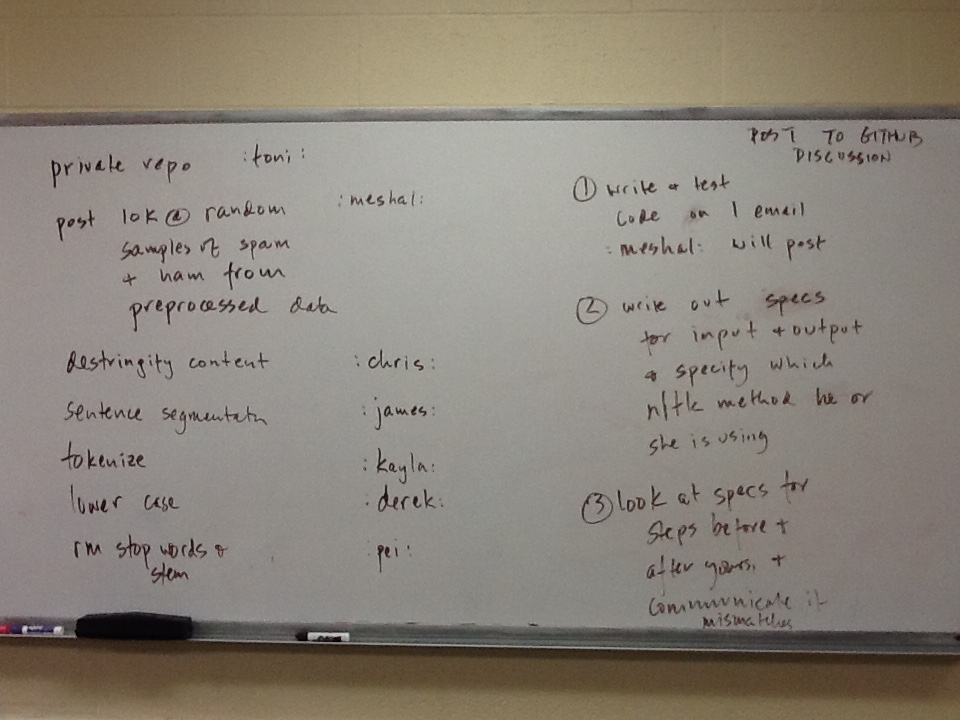 private repo :toni:
post 10K @ random :meshal:
samples of spam
+ ham from
preprocessed data
destringify content :chris:
sentence segmentatn :james:
tokenize :kayla:
lower case :derek:
rm stop words + :pei:
stem
POST TO GITHUB
DISCUSSION
① write + test
code on 1 email
:meshal: will post
② write out specs
for input + output
+ specify which
nltk method he or
she is using
③ look at specs for
steps before +
after yours, +
communicate if
mismatches